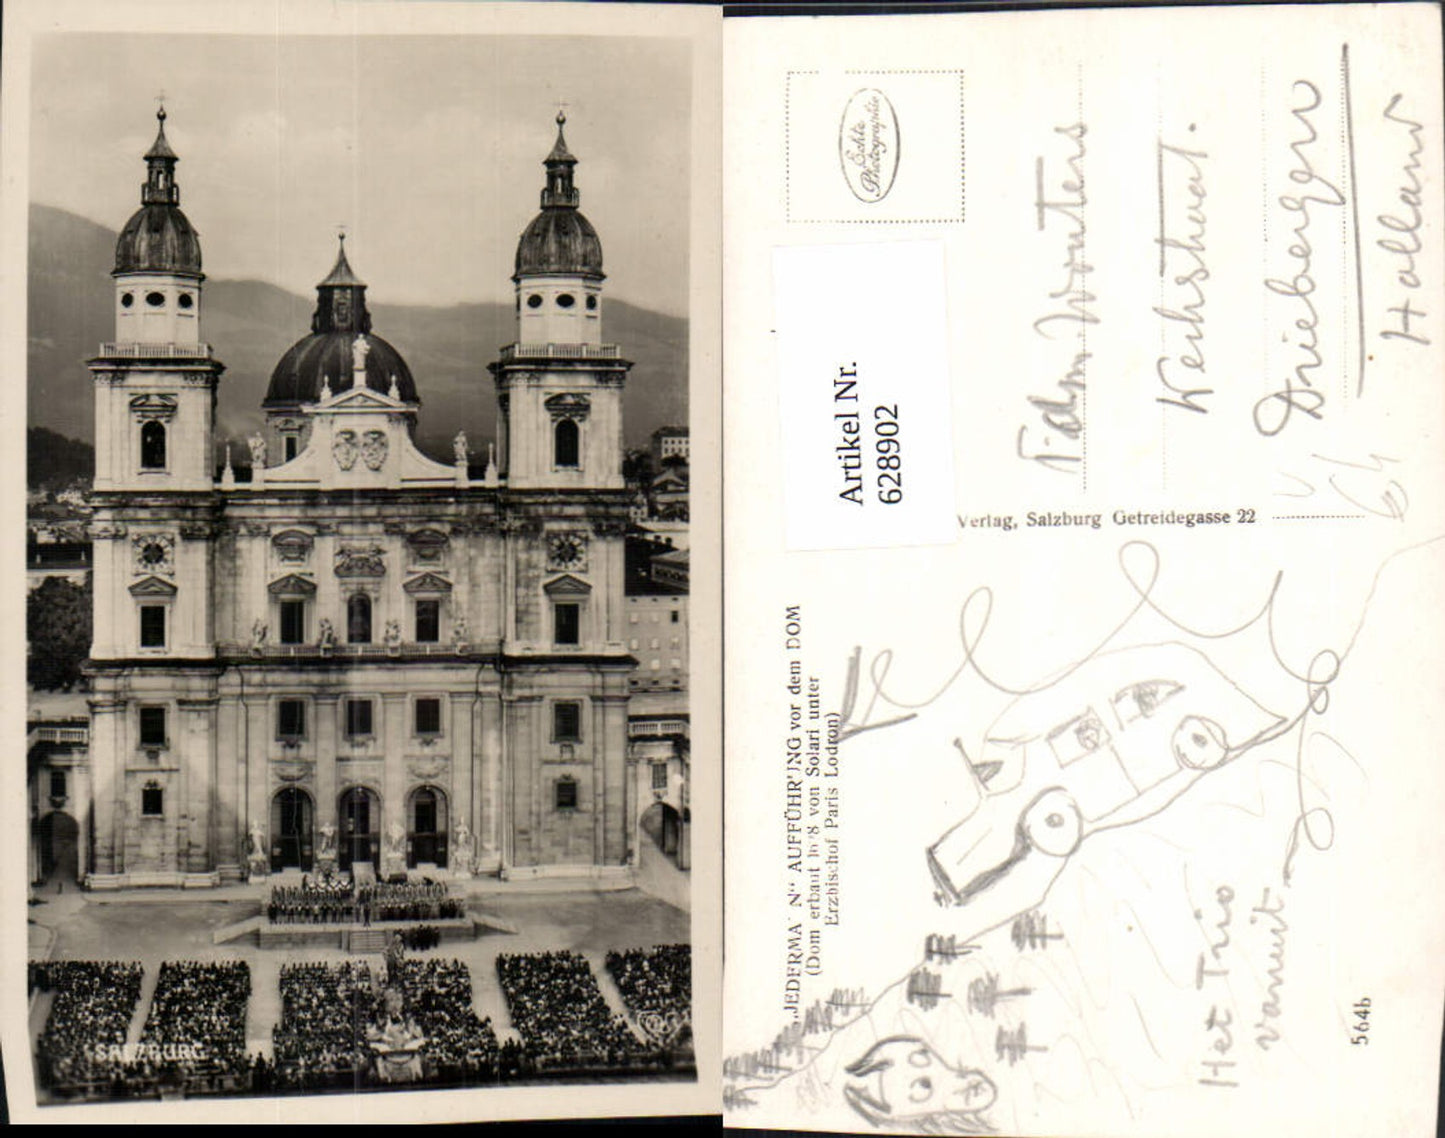 SALZBURG
Echte
Photographie
Artikel Nr.
628902
Fam Wouters
Driebergen
Holland
Verlag, Salzburg Getreidegasse 22
„JEDERMANN“ AUFFÜHRUNG vor dem DOM
(Dom erbaut von Solari unter
Erzbischof Paris Lodron)
Het Trio
vanuit
564b